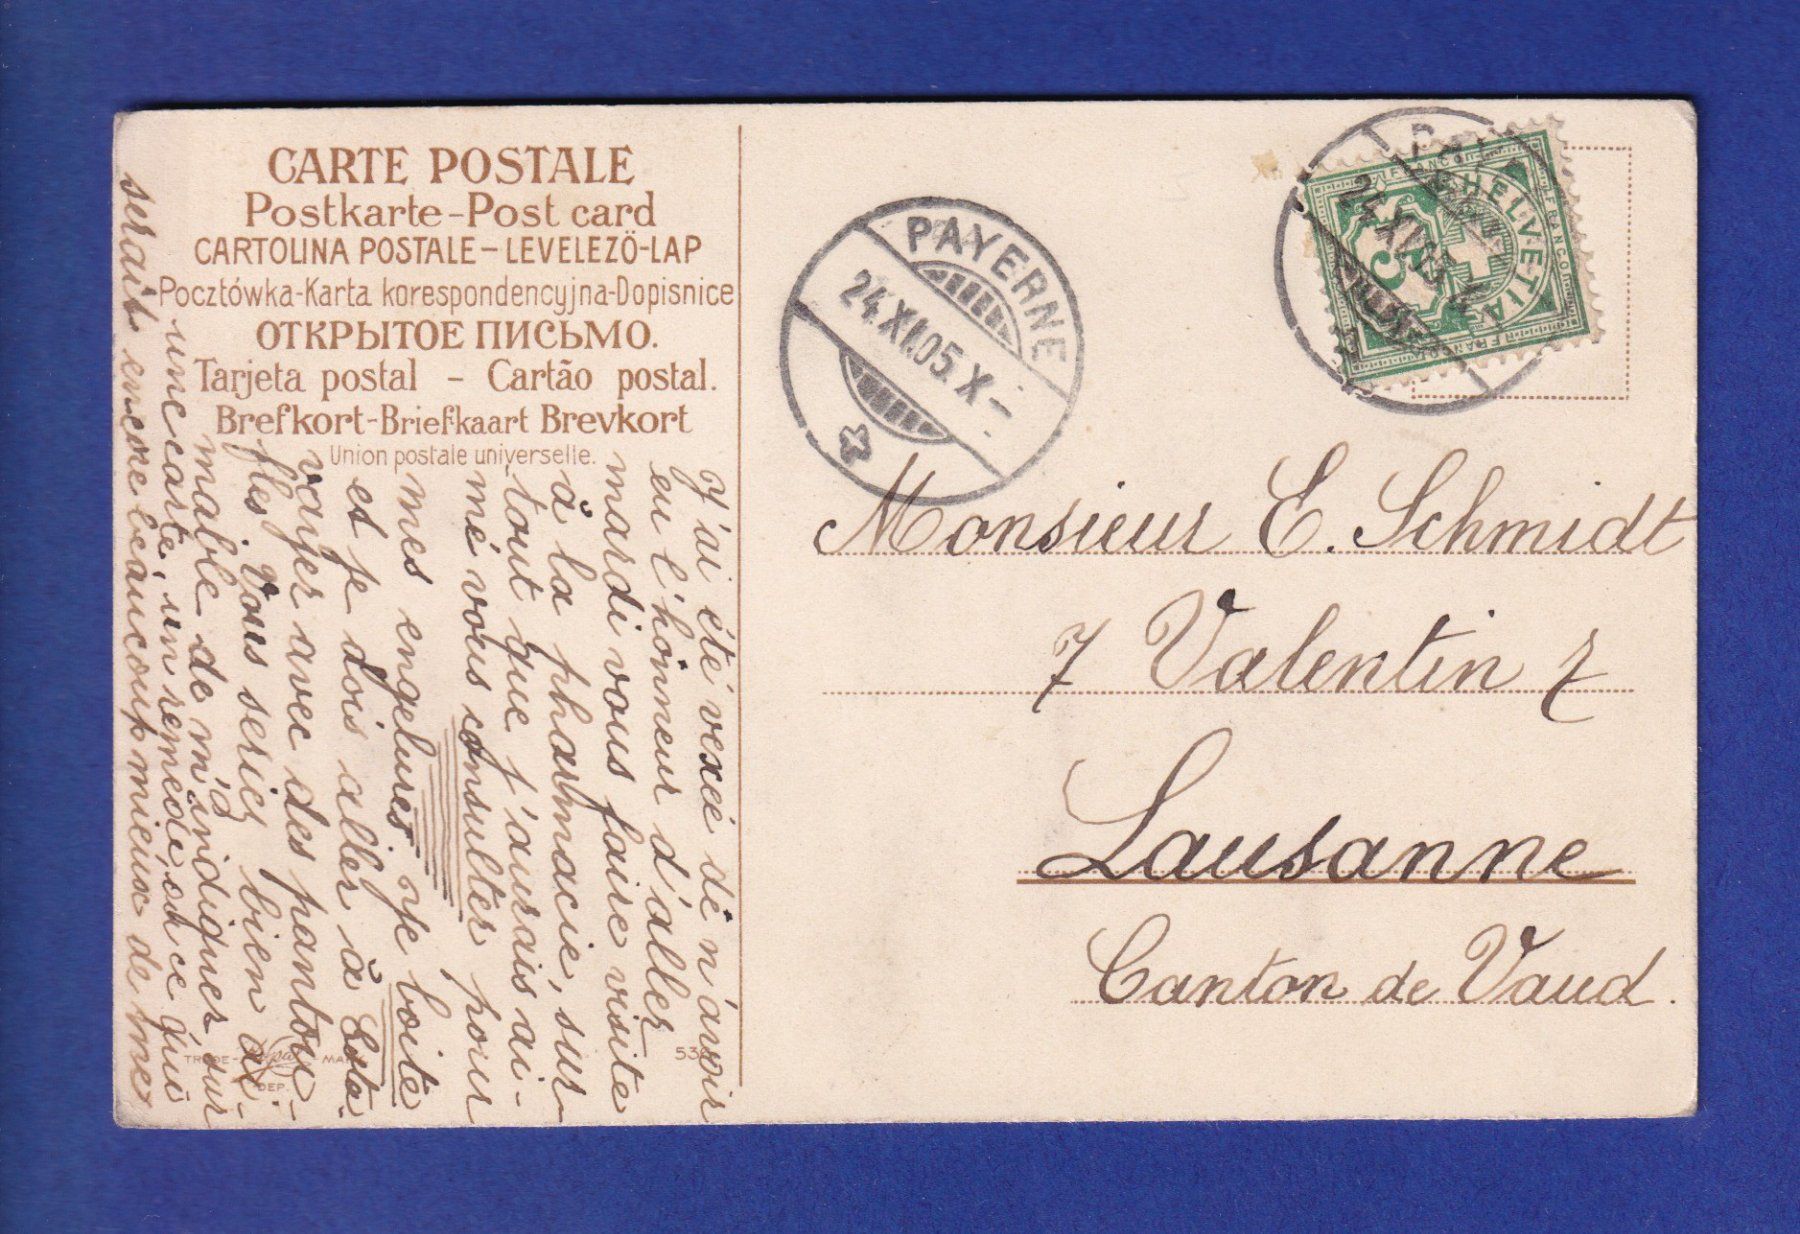 CARTE POSTALE
Postkarte-Post card
CARTOLINA POSTALE-LEVELEZÖ-LAP
Pocztówka-Karta korespondencyjna-Dopisnice
ОТКРЫТОЕ ПИСЬМО.
Tarjeta postal - Cartão postal.
Brefkort-Briefkaart Brevkort
Union postale universelle.
J'ai été vexée de n'avoir
eu l'honneur d'aller
mardi vous faire visite
à la pharmacie, sur-
tout que j'aurais ai-
mé vous consulter pour
mes engelures, je boite
et je dois aller à
varjer avec des pantou-
fles Vous seriez bien ai-
mable de m'indiquer sur
une carte, un remède, et ce qui
serait encore beaucoup mieux de
TRADE- MARK
DEP.
PAYERNE
24.XI.05.X-
HELVETIA
FRANCO
5
24.XI.05.X
Monsieur E. Schmidt
7 Valentin 7
Lausanne
Canton de Vaud.